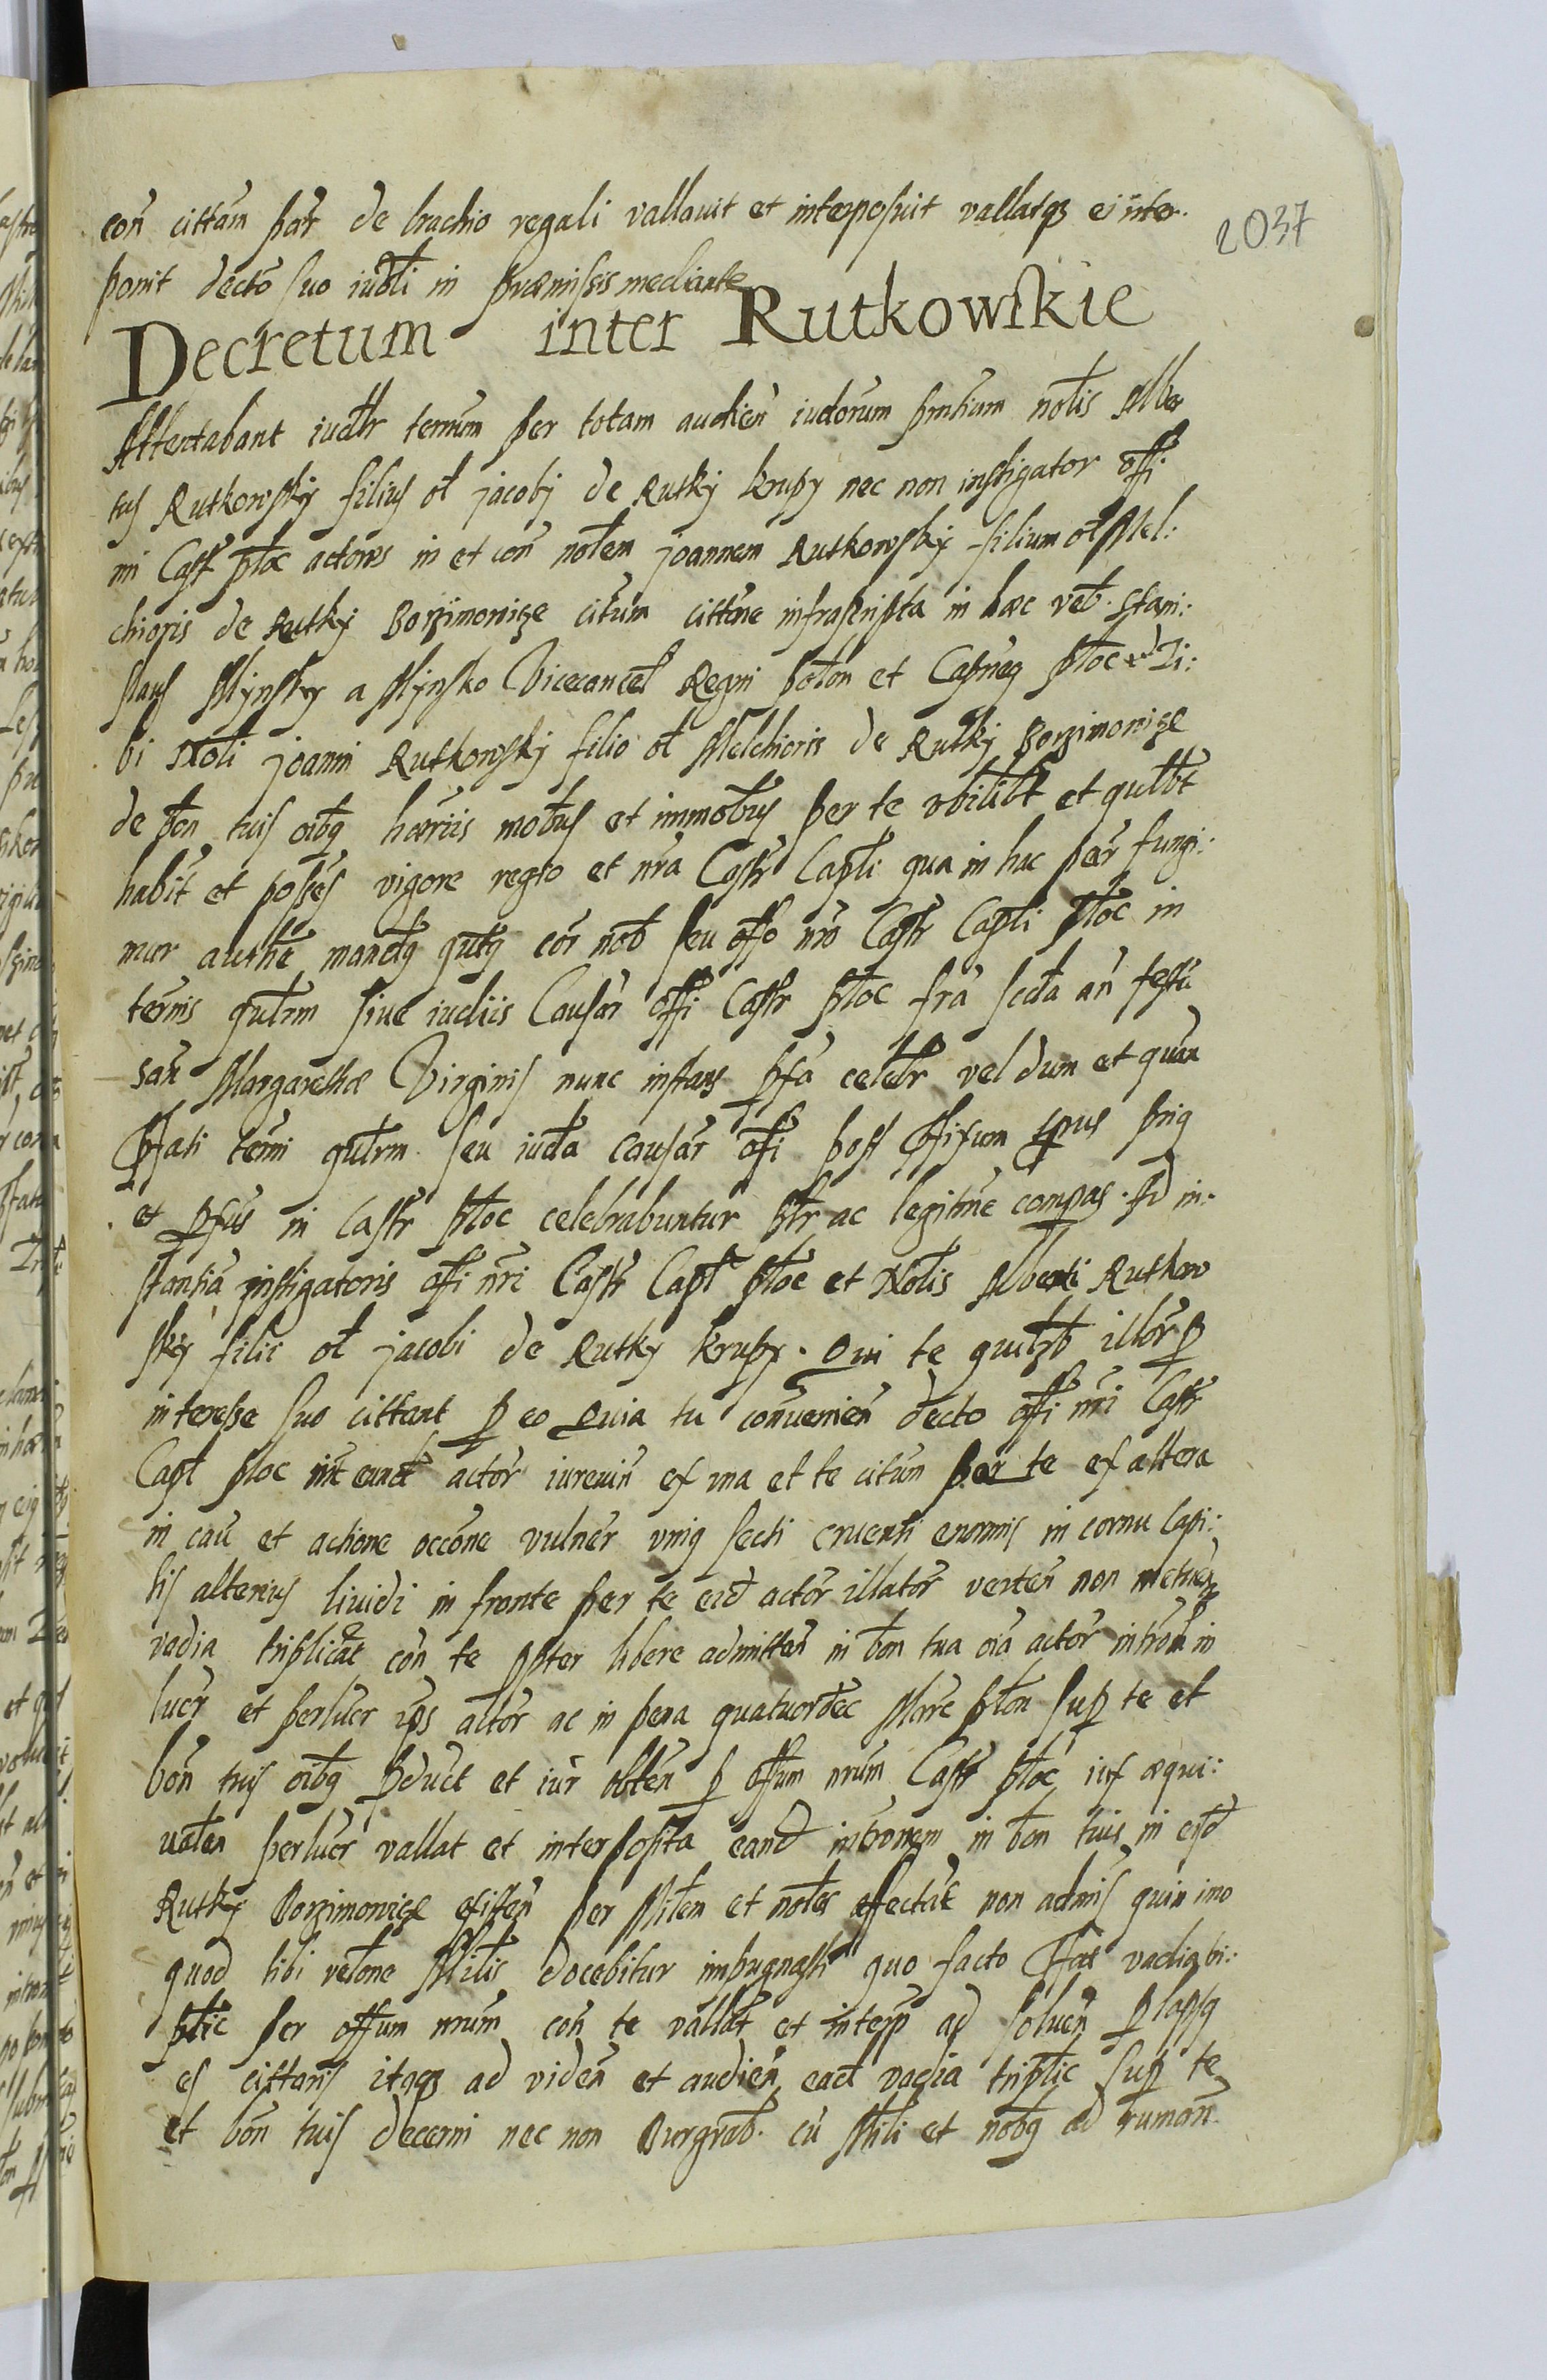 con cittam par de brachio regali vallavit et interposuit vallatqz et inter
2037
ponit decto suo iudli in præmissis mediante
Decretum inter Rutkowskie
Attentabant iudlr termm per totam audien iudiorum pntium nolis Alber
tus Rutkowsky filius ol jacobj de Rutky krupy nec non instigator offi
ni Castr ploc actores in et con nolem joannem Rutkowsky filium ol Mel:
chioris de Rutky Borzimowize citum cittone infrascripta in hæc veb. Stani:
slaus Mynsky a Mynsko Vicecancel Regni polon et Capneq ploc Ti:
bi Noli joanni Rutkowskj filio ol Melchioris de Rutkj Borzimowize
de bon tuis oibq hæriis mobus et immobus per te vbilibt et qulbt
habit et posses vigore regio et nra Castr Capli qua in hac par fungi:
mur authe mandq qutq cor nob seu offo nro Castr Capli ploc in
termis qulrm sive iudiis Causar offi Castr ploc fra scda an festu
san Margarethæ Virginis nunc instans pfa celebr vel dum et quan
Pfati termi qulrm seu iudia causar offi post Pfixum tpus priq
et pfus in Castr ploc celebrabuntur plr ac legitime compas. Ad in:
stantia instigatoris offi nri Castr Capl ploc et Nolis Alberti Rutkow
sky filii ol jacobi de Rutky krupy. Qui te quilzb illor p
interesse suo cittant p eo Quia tu convenien decto offi nri Castr
Capl ploc int eund actor iurevin ex vna et te citum par te ex altera
in cau et actione occone vulner vniq secti cruenti enormis in cornu Capi:
tis alterius lividi in fronte per te eid actor illator verten non metuen
vadia triplicat con te pster libere admitten in bon tua oia actor introm in
lucr et perlucr ips actor ac in pena quatuordec Mare plon sup te et
bon tuis oibq Pduct et iur obten p offum nrum Castr ploc iux æqui:
valen perlucr vallat et interposita eand intronem in bon tuis in eisd
Rutky Borzimowize existen per Milem et noles effectue non admis quin imo
quod tibi relone Milis docebitur impugnasti quo facto Pfat vadia tri:
plic per offum nrum con te vallat et interp ad soluen p lapsq
es cittaris itaqz ad viden et audien ead vadia triplic sup te
et bon tuis decerni nec non Burgrab. cu Mili et nobq ad rumon